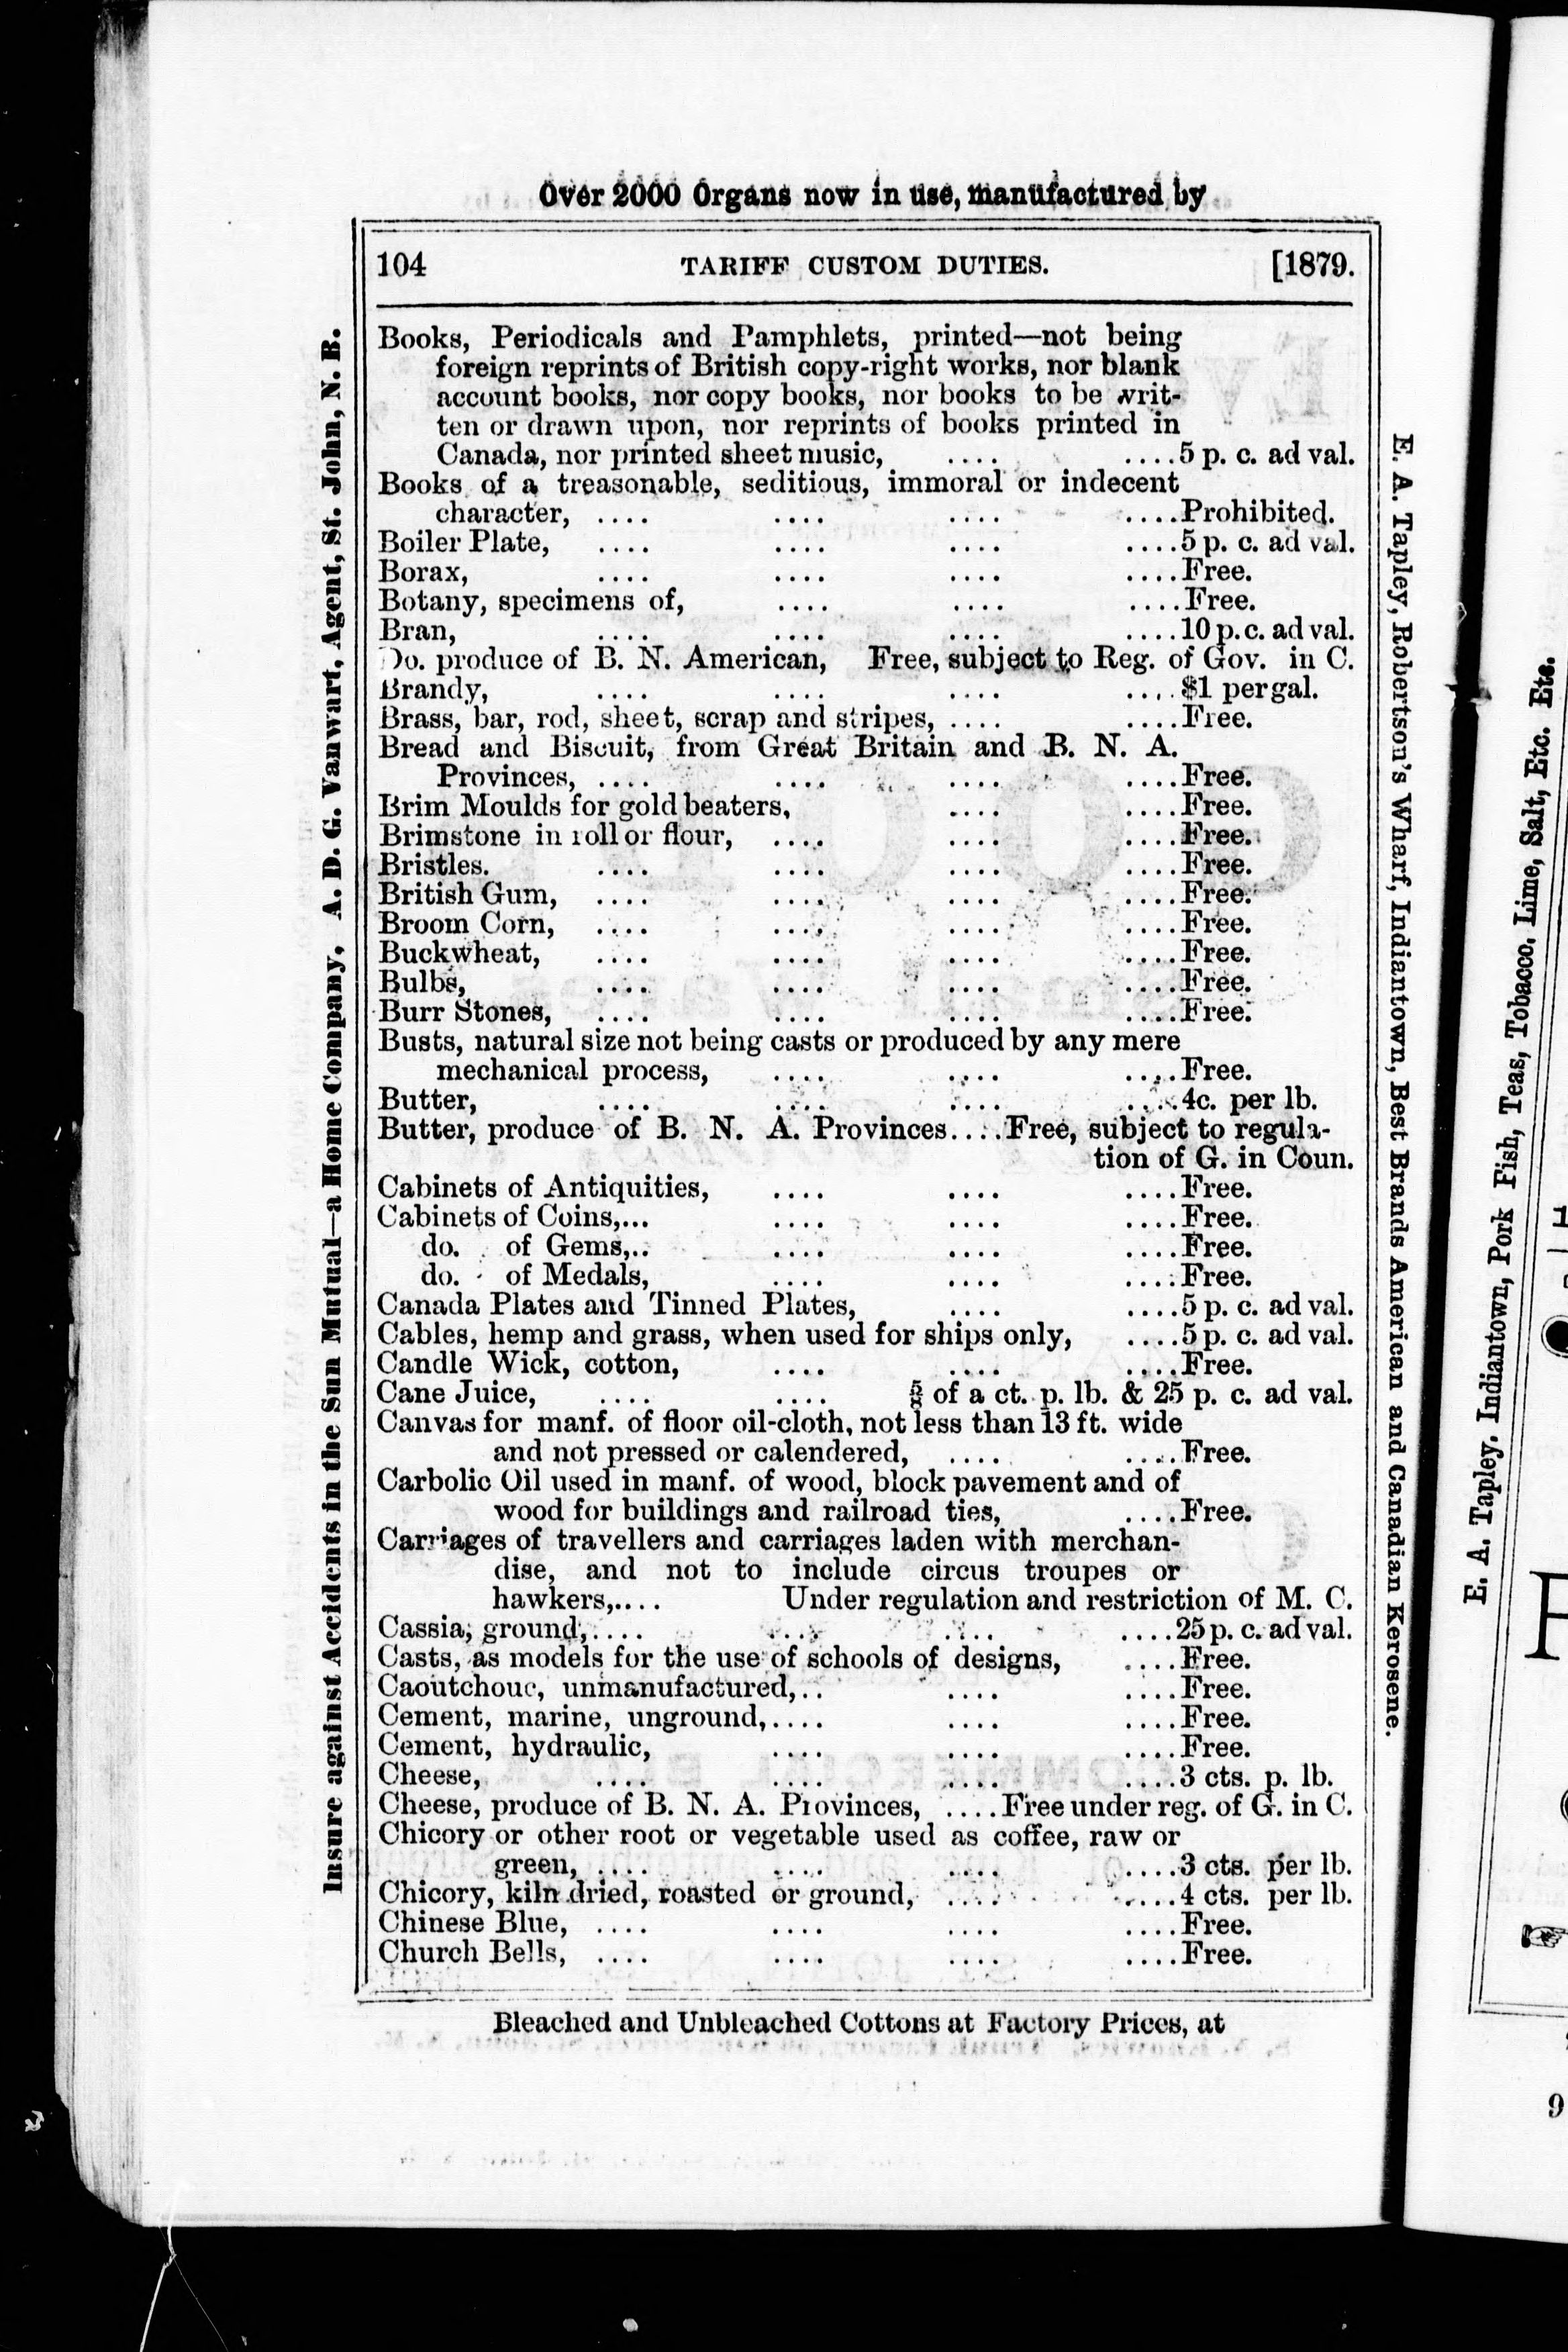 Over 2000 Organs now in use, manufactured by
104 TARIFF CUSTOM DUTIES. [1879.
Books, Periodicals and Pamphlets, printed—not being
foreign reprints of British copy-right works, nor blank
account books, nor copy books, nor books to be writ-
ten or drawn upon, nor reprints of books printed in
Canada, nor printed sheet music, .... ....5 p. c. ad val.
Books of a treasonable, seditious, immoral or indecent
character, .... .... .... ....Prohibited.
Boiler Plate, .... .... .... ....5 p. c. ad val.
Borax, .... .... .... ....Free.
Botany, specimens of, .... .... ....Free.
Bran, .... .... .... ....10 p. c. ad val.
Do. produce of B. N. American, Free, subject to Reg. of Gov. in C.
Brandy, .... .... .... ....$1 per gal.
Brass, bar, rod, sheet, scrap and stripes, .... ....Free.
Bread and Biscuit, from Great Britain and B. N. A.
Provinces, .... .... .... ....Free.
Brim Moulds for gold beaters, .... ....Free.
Brimstone in roll or flour, .... .... ....Free.
Bristles. .... .... .... ....Free.
British Gum, .... .... .... ....Free.
Broom Corn, .... .... .... ....Free.
Buckwheat, .... .... .... ....Free.
Bulbs, .... .... .... ....Free.
Burr Stones, .... .... .... ....Free.
Busts, natural size not being casts or produced by any mere
mechanical process, .... .... ....Free.
Butter, .... .... .... ....4c. per lb.
Butter, produce of B. N. A. Provinces....Free, subject to regula-
tion of G. in Coun.
Cabinets of Antiquities, .... .... ....Free.
Cabinets of Coins,... .... .... ....Free.
do. of Gems,.. .... .... ....Free.
do. of Medals, .... .... ....Free.
Canada Plates and Tinned Plates, .... ....5 p. c. ad val.
Cables, hemp and grass, when used for ships only, ....5 p. c. ad val.
Candle Wick, cotton, .... .... ....Free.
Cane Juice, .... .... ⅝ of a ct. p. lb. & 25 p. c. ad val.
Canvas for manf. of floor oil-cloth, not less than 13 ft. wide
and not pressed or calendered, .... ....Free.
Carbolic Oil used in manf. of wood, block pavement and of
wood for buildings and railroad ties, ....Free.
Carriages of travellers and carriages laden with merchan-
dise, and not to include circus troupes or
hawkers,.... Under regulation and restriction of M. C.
Cassia, ground,.... .... .... ....25 p. c. ad val.
Casts, as models for the use of schools of designs, ....Free.
Caoutchouc, unmanufactured,.. .... ....Free.
Cement, marine, unground,.... .... ....Free.
Cement, hydraulic, .... .... ....Free.
Cheese, .... .... .... ....3 cts. p. lb.
Cheese, produce of B. N. A. Provinces, ....Free under reg. of G. in C.
Chicory or other root or vegetable used as coffee, raw or
green, .... .... .... ....3 cts. per lb.
Chicory, kiln dried, roasted or ground, .... ....4 cts. per lb.
Chinese Blue, .... .... .... ....Free.
Church Bells, .... .... .... ....Free.
Bleached and Unbleached Cottons at Factory Prices, at
Insure against Accidents in the Sun Mutual—a Home Company, A. D. G. Vanwart, Agent, St. John, N. B.
E. A. Tapley, Robertson's Wharf, Indiantown, Best Brands American and Canadian Kerosene.
E. A. Tapley, Indiantown, Pork Fish, Teas, Tobacco, Lime, Salt, Etc. Etc.
F
9